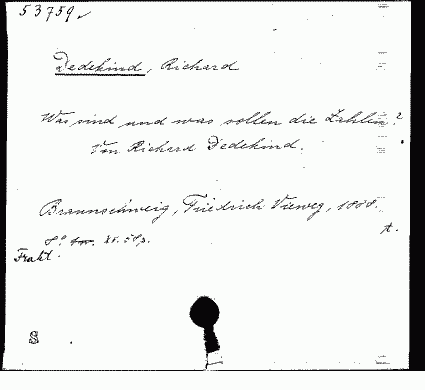 53759
Dedekind, Richard
Was sind und was sollen die Zahlen?
Von Richard Dedekind.
Braunschweig, Friedrich Vieweg, 1888.
t.
8° XV. 58 p.
Frakt.
S